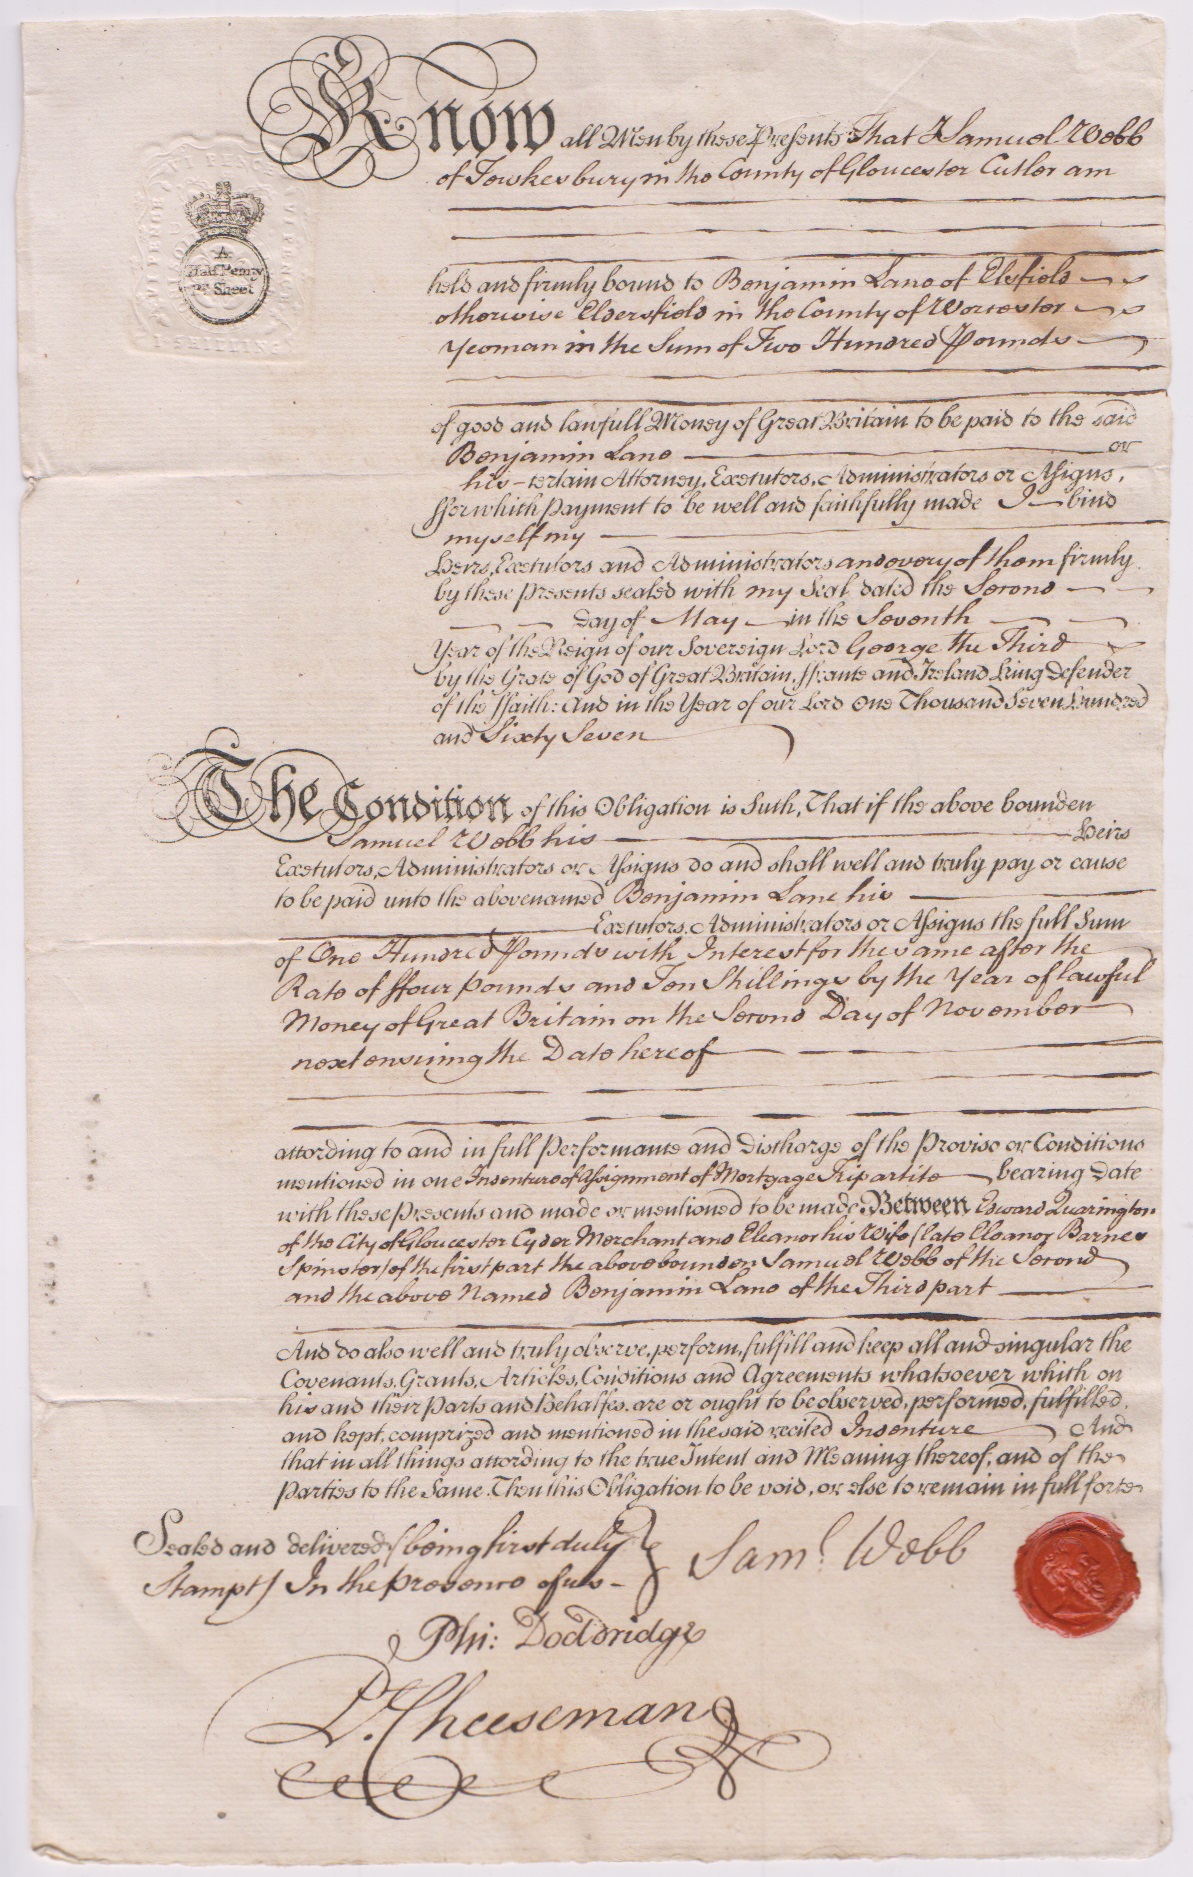 Know all Men by these Presents That I Samuel Webb
of Tewkesbury in the County of Gloucester Cutler am
A
Half Penny
pr Sheet
held and firmly bound to Benjamin Lane of Elsfield
otherwise Eldersfield in the County of Worcester
Yeoman in the Sum of Two Hundred Pounds
of good and lawfull Money of Great Britain to be paid to the said
Benjamin Lane or
his certain Attorney, Executors, Administrators or Assigns,
ffor which Payment to be well and faithfully made I bind
myself my
Heirs, Executors and Administrators and every of them firmly
by these Presents sealed with my Seal dated the Second
Day of May in the Seventh
Year of the Reign of our Sovereign Lord George the Third
by the Grace of God of Great Britain, ffrance and Ireland King Defender
of the ffaith: And in the Year of our Lord One Thousand Seven Hundred
and Sixty Seven
The Condition of this Obligation is Such, That if the above bounden
Samuel Webb his Heirs
Executors, Administrators or Assigns do and shall well and truly pay or cause
to be paid unto the abovenamed Benjamin Lane his
Executors, Administrators or Assigns the full Sum
of One Hundred Pounds with Interest for the same after the
Rate of ffour pounds and Ten Shillings by the Year of lawful
Money of Great Britain on the Second Day of November
next ensuing the Date hereof
according to and in full Performance and Discharge of the Proviso or Conditions
mentioned in one Indenture of Assignment of Mortgage Tripartite bearing Date
with these Presents and made or mentioned to be made Between Edward Quarington
of the City of Gloucester Cyder Merchant and Eleanor his Wife (late Eleanor Barnes
Spinster) of the first part the above bounden Samuel Webb of the Second
and the above Named Benjamin Lane of the Third part
And do also well and truly observe, perform, fulfill and keep all and singular the
Covenants, Grants, Articles, Conditions and Agreements whatsoever which on
his and their Parts and Behalfes, are or ought to be observed, performed, fulfilled,
and kept, comprized and mentioned in the said recited Indenture And
that in all things according to the true Intent and Meaning thereof, and of the
Parties to the Same. Then this Obligation to be void, or else to remain in full force
Sealed and delivered (being first duly
Stampt) In the presence of us
Saml Webb
Phi: Doddridge
D. Cheeseman